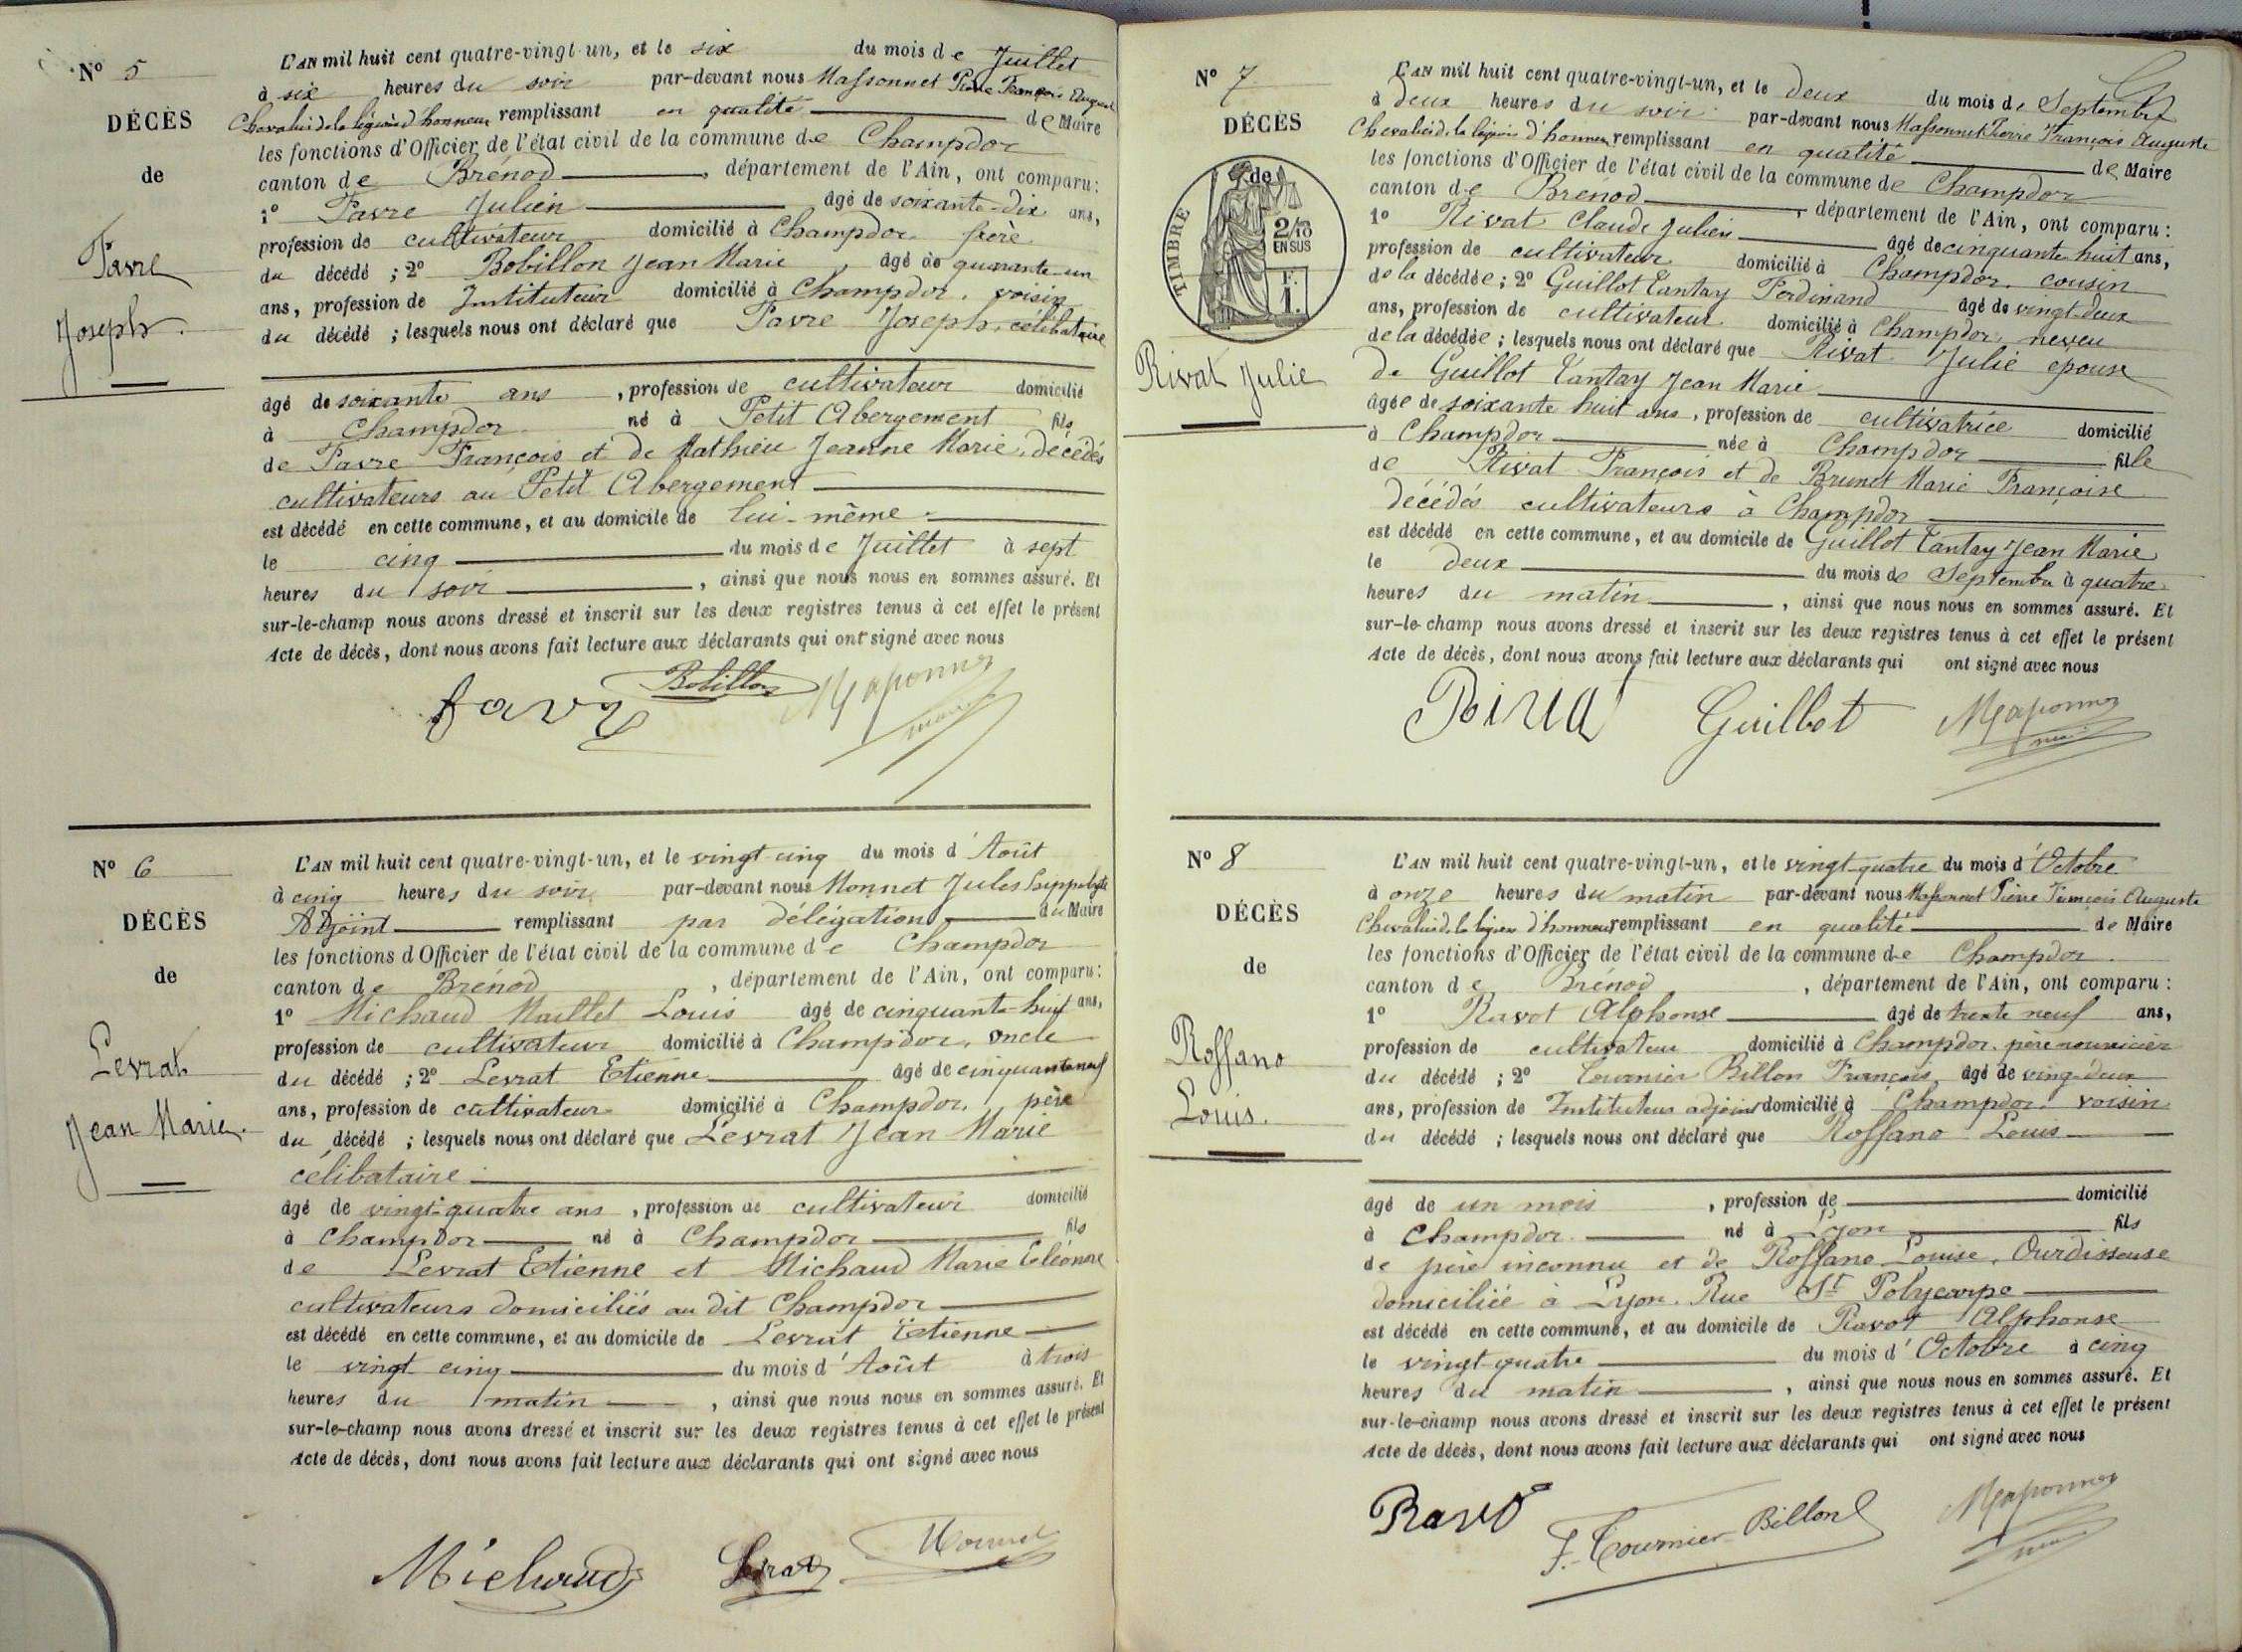 N° 5
DÉCÈS
de
Favre
Joseph.
L'AN mil huit cent quatre-vingt-un, et le six du mois de Juillet
à six heures du soir par-devant nous Massonnet Pierre François Auguste
Chevalier de la légion d'honneur remplissant en qualité de Maire
les fonctions d'Officier de l'état civil de la commune de Champdor
canton de Brénod, département de l'Ain, ont comparu:
1° Favre Julien âgé de soixante-dix ans,
profession de cultivateur domicilié à Champdor frère
du décédé; 2° Bobillon Jean Marie, âgé de quarante-un
ans, profession de Instituteur domicilié à Champdor, voisin
du décédé; lesquels nous ont déclaré que Favre Joseph, célibataire
âgé de soixante ans, profession de cultivateur domicilié
à Champdor né à Petit Abergement fils
de Favre François et de Mathieu Jeanne Marie, décédés
cultivateurs au Petit Abergement
est décédé en cette commune, et au domicile de lui-même.
le cinq du mois de Juillet à sept
heures du soir, ainsi que nous nous en sommes assuré. Et
sur-le-champ nous avons dressé et inscrit sur les deux registres tenus à cet effet le présent
Acte de décès, dont nous avons fait lecture aux déclarants qui ont signé avec nous
favre Bobillon Massonnet
maire
N° 6
DÉCÈS
de
Levrat
Jean Marie.
L'AN mil huit cent quatre-vingt-un, et le vingt-cinq du mois d'Août
à cinq heures du soir par-devant nous Monnet Jules hippolyte
Adjoint remplissant par délégation du Maire
les fonctions d'Officier de l'état civil de la commune de Champdor
canton de Brénod, département de l'Ain, ont comparu:
1° Michaud Maillet Louis âgé de cinquante-huit ans,
profession de cultivateur domicilié à Champdor, oncle
du décédé; 2° Levrat Etienne âgé de cinquante neuf
ans, profession de cultivateur domicilié à Champdor, père
du décédé; lesquels nous ont déclaré que Levrat Jean Marie
célibataire
âgé de vingt-quatre ans, profession de cultivateur domicilié
à Champdor né à Champdor fils
de Levrat Etienne et Michaud Marie Eléonore
cultivateurs domiciliés au dit Champdor
est décédé en cette commune, et au domicile de Levrat Etienne
le vingt cinq du mois d'Août à trois
heures du matin, ainsi que nous nous en sommes assuré. Et
sur-le-champ nous avons dressé et inscrit sur les deux registres tenus à cet effet le présent
Acte de décès, dont nous avons fait lecture aux déclarants qui ont signé avec nous
Michaud Levrat Monnet
N° 7
DÉCÈS
de
TIMBRE
2/10
EN SUS
F.
1.
Rivat Julie
L'AN mil huit cent quatre-vingt-un, et le deux du mois de Septembre
à deux heures du soir par-devant nous Massonnet Pierre François Auguste
Chevalier de la légion d'honneur remplissant en qualité de Maire
les fonctions d'Officier de l'état civil de la commune de Champdor
canton de Brenod, département de l'Ain, ont comparu:
1° Rivat Claude Julien âgé de cinquante huit ans,
profession de cultivateur domicilié à Champdor, cousin
de la décédée; 2° Guillot Tantay Ferdinand âgé de vingt-deux
ans, profession de cultivateur domicilié à Champdor, neveu
de la décédée; lesquels nous ont déclaré que Rivat Julie épouse
de Guillot Tantay Jean Marie
âgée de soixante huit ans, profession de cultivatrice domicilié
à Champdor née à Champdor fille
de Rivat François et de Brunet Marie Françoise
décédés cultivateurs à Champdor
est décédé en cette commune, et au domicile de Guillot Tantay Jean Marie
le deux du mois de Septembre à quatre
heures du matin, ainsi que nous nous en sommes assuré. Et
sur-le-champ nous avons dressé et inscrit sur les deux registres tenus à cet effet le présent
Acte de décès, dont nous avons fait lecture aux déclarants qui ont signé avec nous
Guillot Massonnet
N° 8
DÉCÈS
de
Roffano
Louis.
L'AN mil huit cent quatre-vingt-un, et le vingt-quatre du mois d'Octobre
à onze heures du matin par-devant nous Massonnet Pierre François Auguste
Chevalier de la légion d'honneur remplissant en qualité de Maire
les fonctions d'Officier de l'état civil de la commune de Champdor
canton de Brénod, département de l'Ain, ont comparu:
1° Ravot Alphonse âgé de trente neuf ans,
profession de cultivateur domicilié à Champdor. père nourricier
du décédé; 2° Tournier Billon François, âgé de vingt-deux
ans, profession de Instituteur adjoint domicilié à Champdor voisin
du décédé; lesquels nous ont déclaré que Roffano Louis
âgé de un mois, profession de domicilié
à Champdor né à Lyon fils
de père inconnu et de Roffano Louise, Ourdisseuse
domiciliée à Lyon. Rue St Polycarpe
est décédé en cette commune, et au domicile de Ravot Alphonse
le vingt-quatre du mois d'Octobre à cinq
heures du matin, ainsi que nous nous en sommes assuré. Et
sur-le-champ nous avons dressé et inscrit sur les deux registres tenus à cet effet le présent
Acte de décès, dont nous avons fait lecture aux déclarants qui ont signé avec nous
Ravot F. Tournier-Billon Massonnet